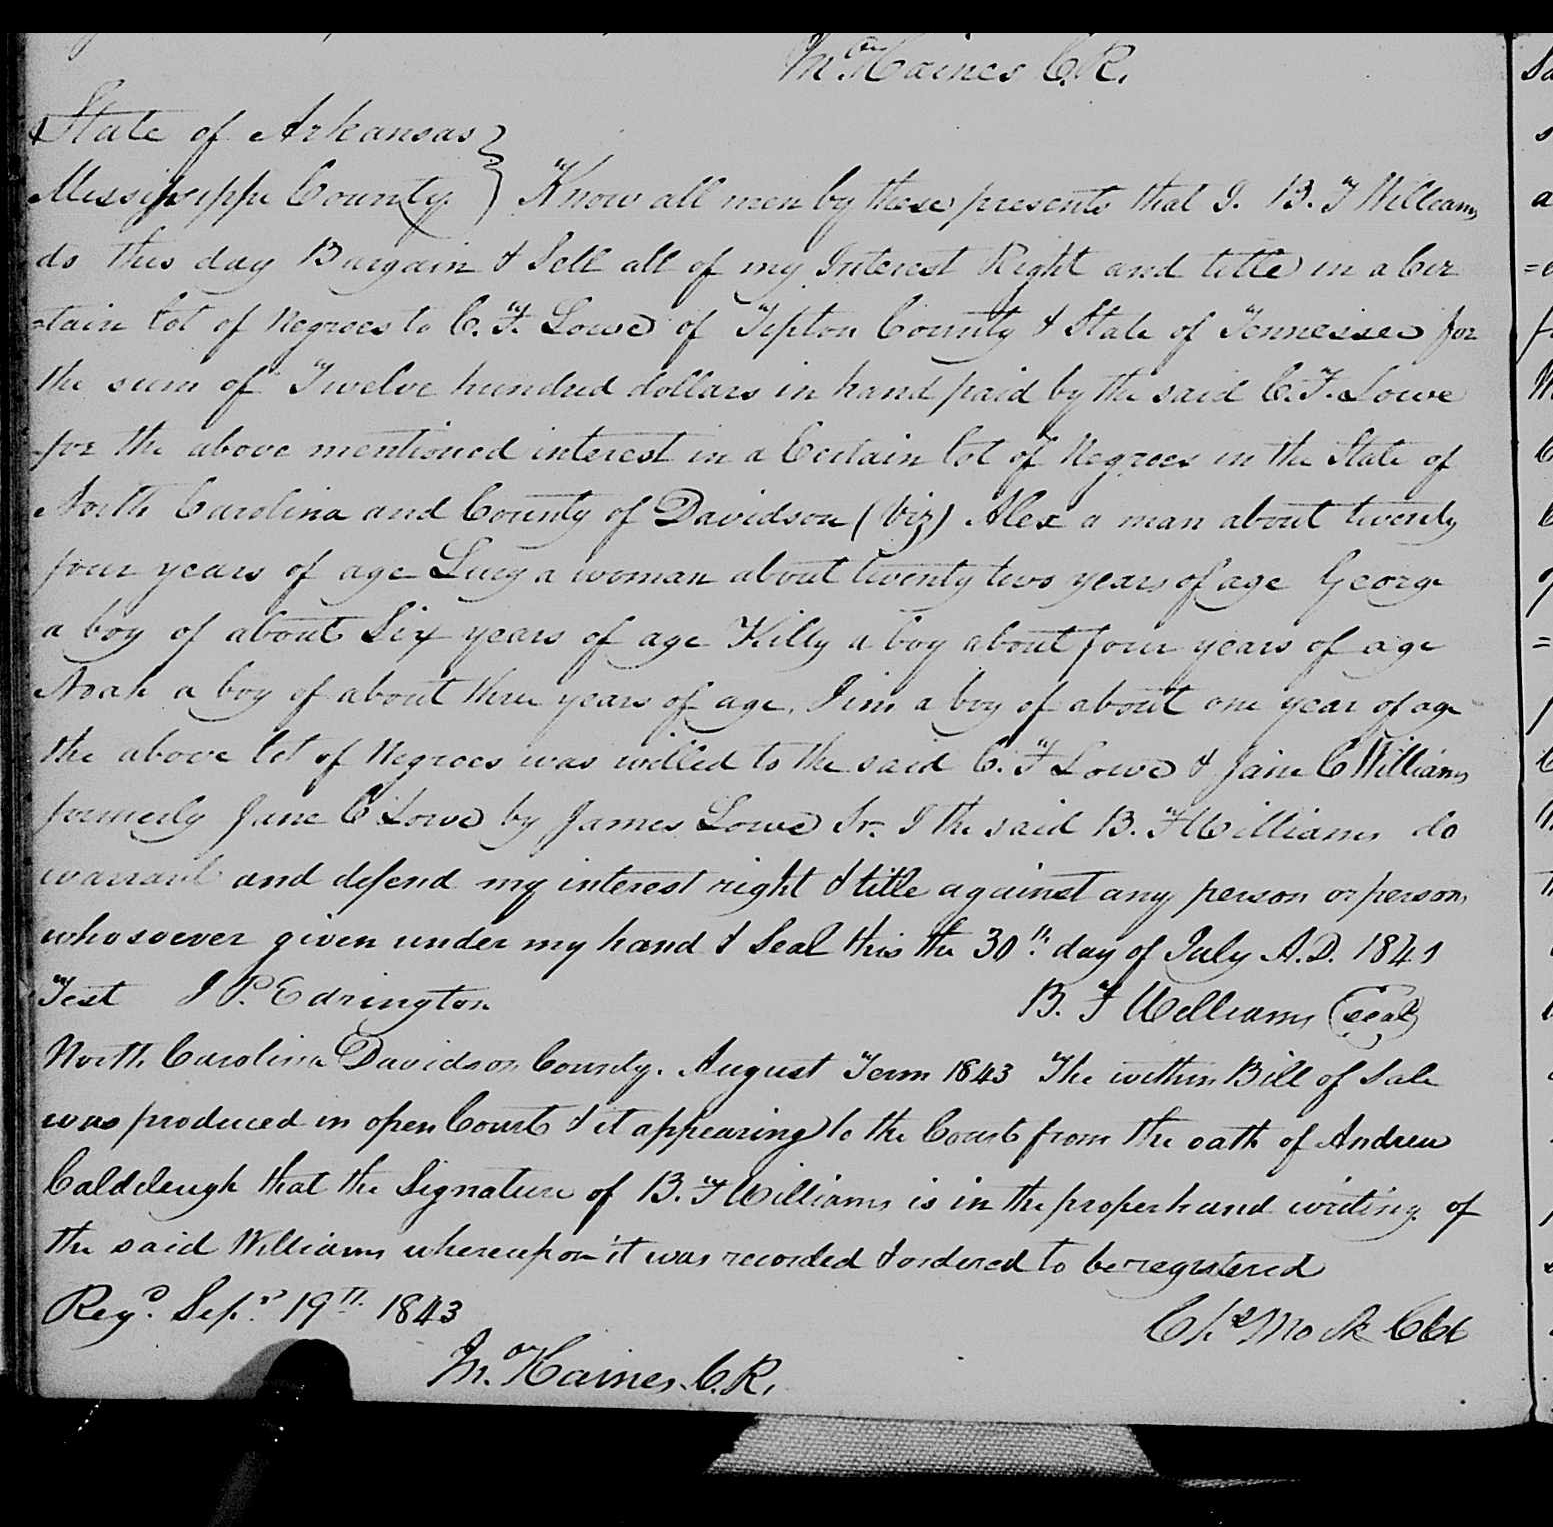 Mc Haines C.R.
State of Arkansas }
Mississippi County } Know all men by these presents that I. B. F Williams
do this day Bargain & Sell all of my Interest Right and title in a Cer
=tain lot of Negroes to C. F. Lowe of Tipton County & State of Tennessee for
the sum of Twelve hundred dollars in hand paid by the said C. F. Lowe
for the above mentioned interest in a Certain lot of Negroes in the State of
North Carolina and County of Davidson (viz) Alex a man about twenty
four years of age Lucy a woman about twenty two years of age George
a boy of about Six years of age Killy a boy about four years of age
Noah a boy of about three years of age. Jim a boy of about one year of age
the above lot of Negroes was willed to the said C. F Lowe & Jane C Williams
formerly Jane C Lowe by James Lowe Sr. I the said B. F Williams do
warrant and defend my interest right & title against any person or persons
whosoever given under my hand & Seal this the 30th. day of July A.D. 1841
Test J P. Edrington B. F Williams (seal)
North Carolina Davidson County. August Term 1843 The within Bill of Sale
was produced in open Court & it appearing to the Court from the oath of Andrew
Caldcleugh that the Signature of B. F Williams is in the proper hand writing of
the said Williams whereupon it was recorded & ordered to be registered
Regd. Sepr. 19th. 1843 Chs Mock CCC
Mc Haines. C. R.